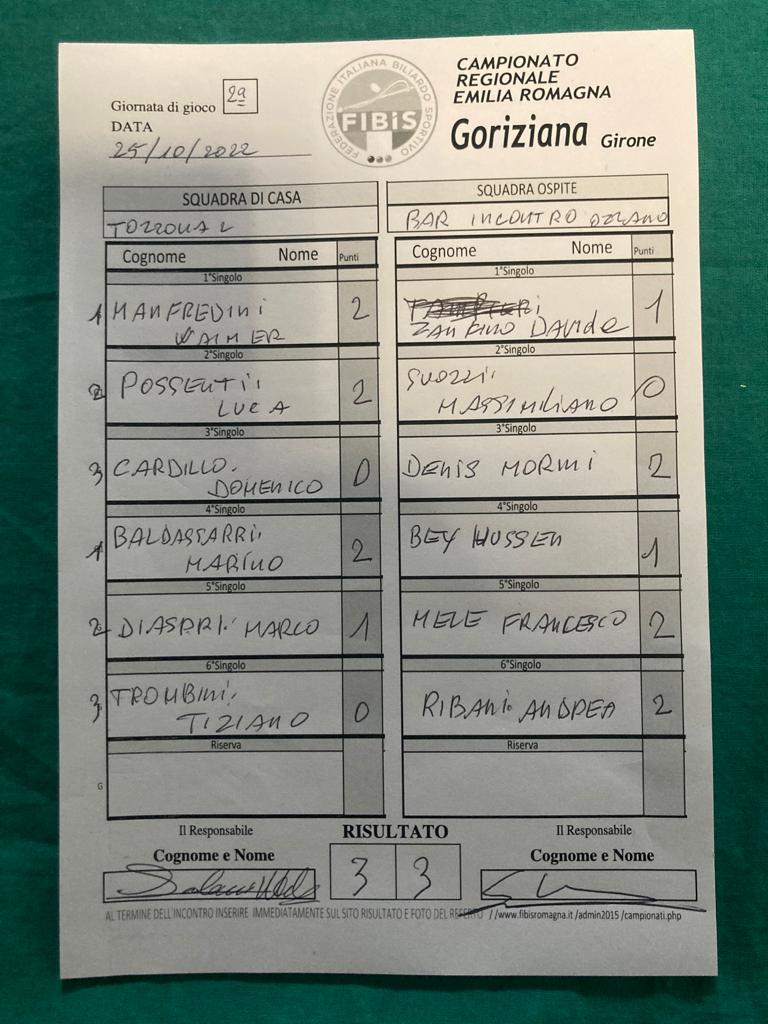 Giornata di gioco 2a
DATA
25/10/2022
FEDERAZIONE ITALIANA BILIARDO SPORTIVO
FIBiS
CAMPIONATO
REGIONALE
EMILIA ROMAGNA
Goriziana Girone
SQUADRA DI CASA
TOZZONA 2
SQUADRA OSPITE
BAR INCONTRO OZZANO
Cognome Nome Punti
1°Singolo
1 MANFREDINI 2
WALMER
2°Singolo
2 POSSENTI 2
LUCA
3°Singolo
3 CARDILLO 0
DOMENICO
4°Singolo
1 BALDASSARRI 2
MARINO
5°Singolo
2 DIASPRI MARCO 1
6°Singolo
3 TROMBINI 0
TIZIANO
Riserva
G
Cognome Nome Punti
1°Singolo
DAVIDE 1
2°Singolo
SUOZZI 0
MASSIMILIANO
3°Singolo
DENIS MORINI 2
4°Singolo
BEY HUSSEN 1
5°Singolo
MELE FRANCESCO 2
6°Singolo
RIBANI ANDREA 2
Riserva
Il Responsabile
Cognome e Nome
RISULTATO
3 3
Il Responsabile
Cognome e Nome
AL TERMINE DELL'INCONTRO INSERIRE IMMEDIATAMENTE SUL SITO RISULTATO E FOTO DEL REFERTO //www.fibisromagna.it /admin2015 /campionati.php